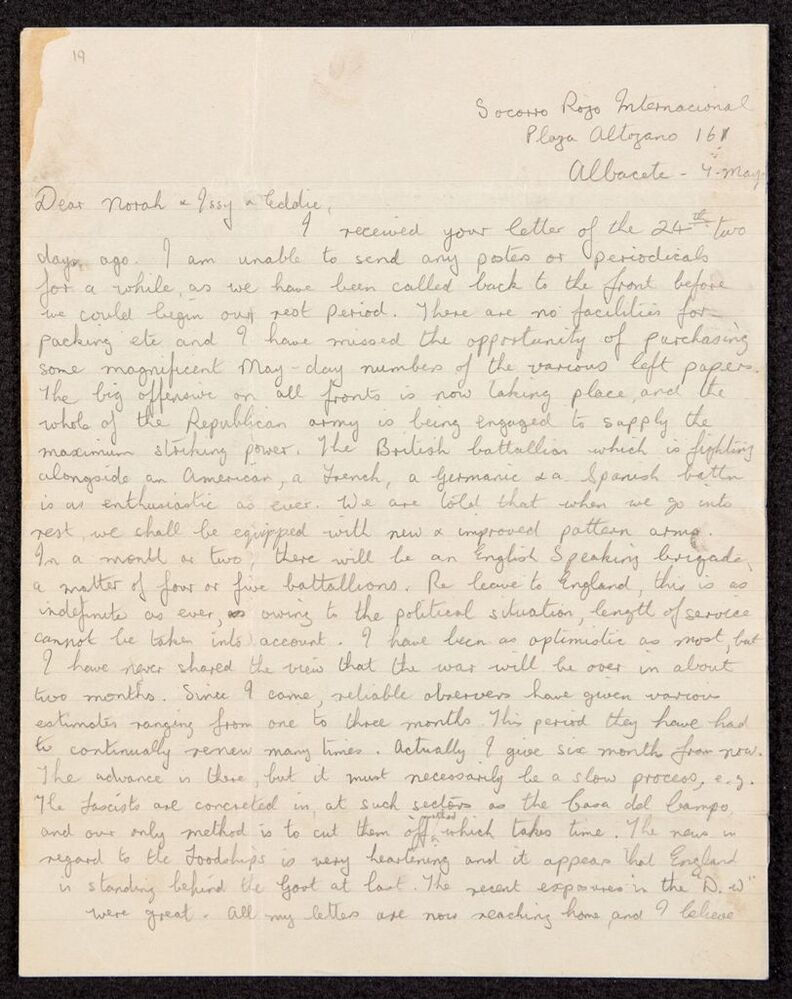 19
Socorro Rojo Internacional
Plaza Altozano 161
Albacete - 4. May
Dear Norah & Issy & Eddie,
I received your letter of the 24th two
days ago. I am unable to send any posters or periodicals
for a while, as we have been called back to the front before
we could begin our rest period. There are no facilities for
packing etc and I have missed the opportunity of purchasing
some magnificent May-day numbers of the various left papers.
The big offensive on all fronts is now taking place, and the
whole of the Republican army is being engaged to supply the
maximum striking power. The British battallion which is fighting
alongside an American, a French, a Germanic & a Spanish battn
is as enthusiastic as ever. We are told that when we go into
rest, we shall be equipped with new & improved pattern arms.
In a month or two, there will be an English Speaking brigade,
a matter of four or five battallions. Re leave to England, this is as
indefinite as ever, owing to the political situation, length of service
cannot be taken into account. I have been as optimistic as most, but
I have never shared the view that the war will be over in about
two months. Since I came, reliable observers have given various
estimates ranging from one to three months. This period they have had
to continually renew many times. Actually I give six months from now.
The advance is there, but it must necessarily be a slow process, e.g.
The fascists are concreted in, at such sectors as the Casa del Campo,
and our only method is to cut them off, which takes time. The news in
regard to the Foodships is very heartening and it appears that England
is standing behind the Govt at last. The recent exposures in the "D.W"
were great. All my letters are now reaching home, and I believe